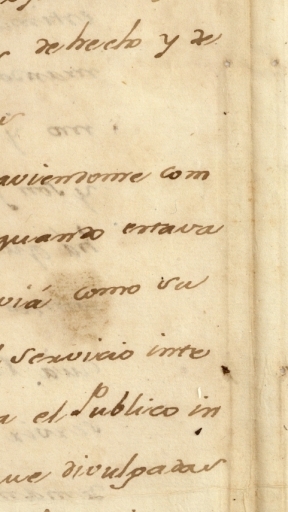 de hecho y de
aviendome com
quando estava
viá como su
servicio inte
a el Publico in
que divulpadas